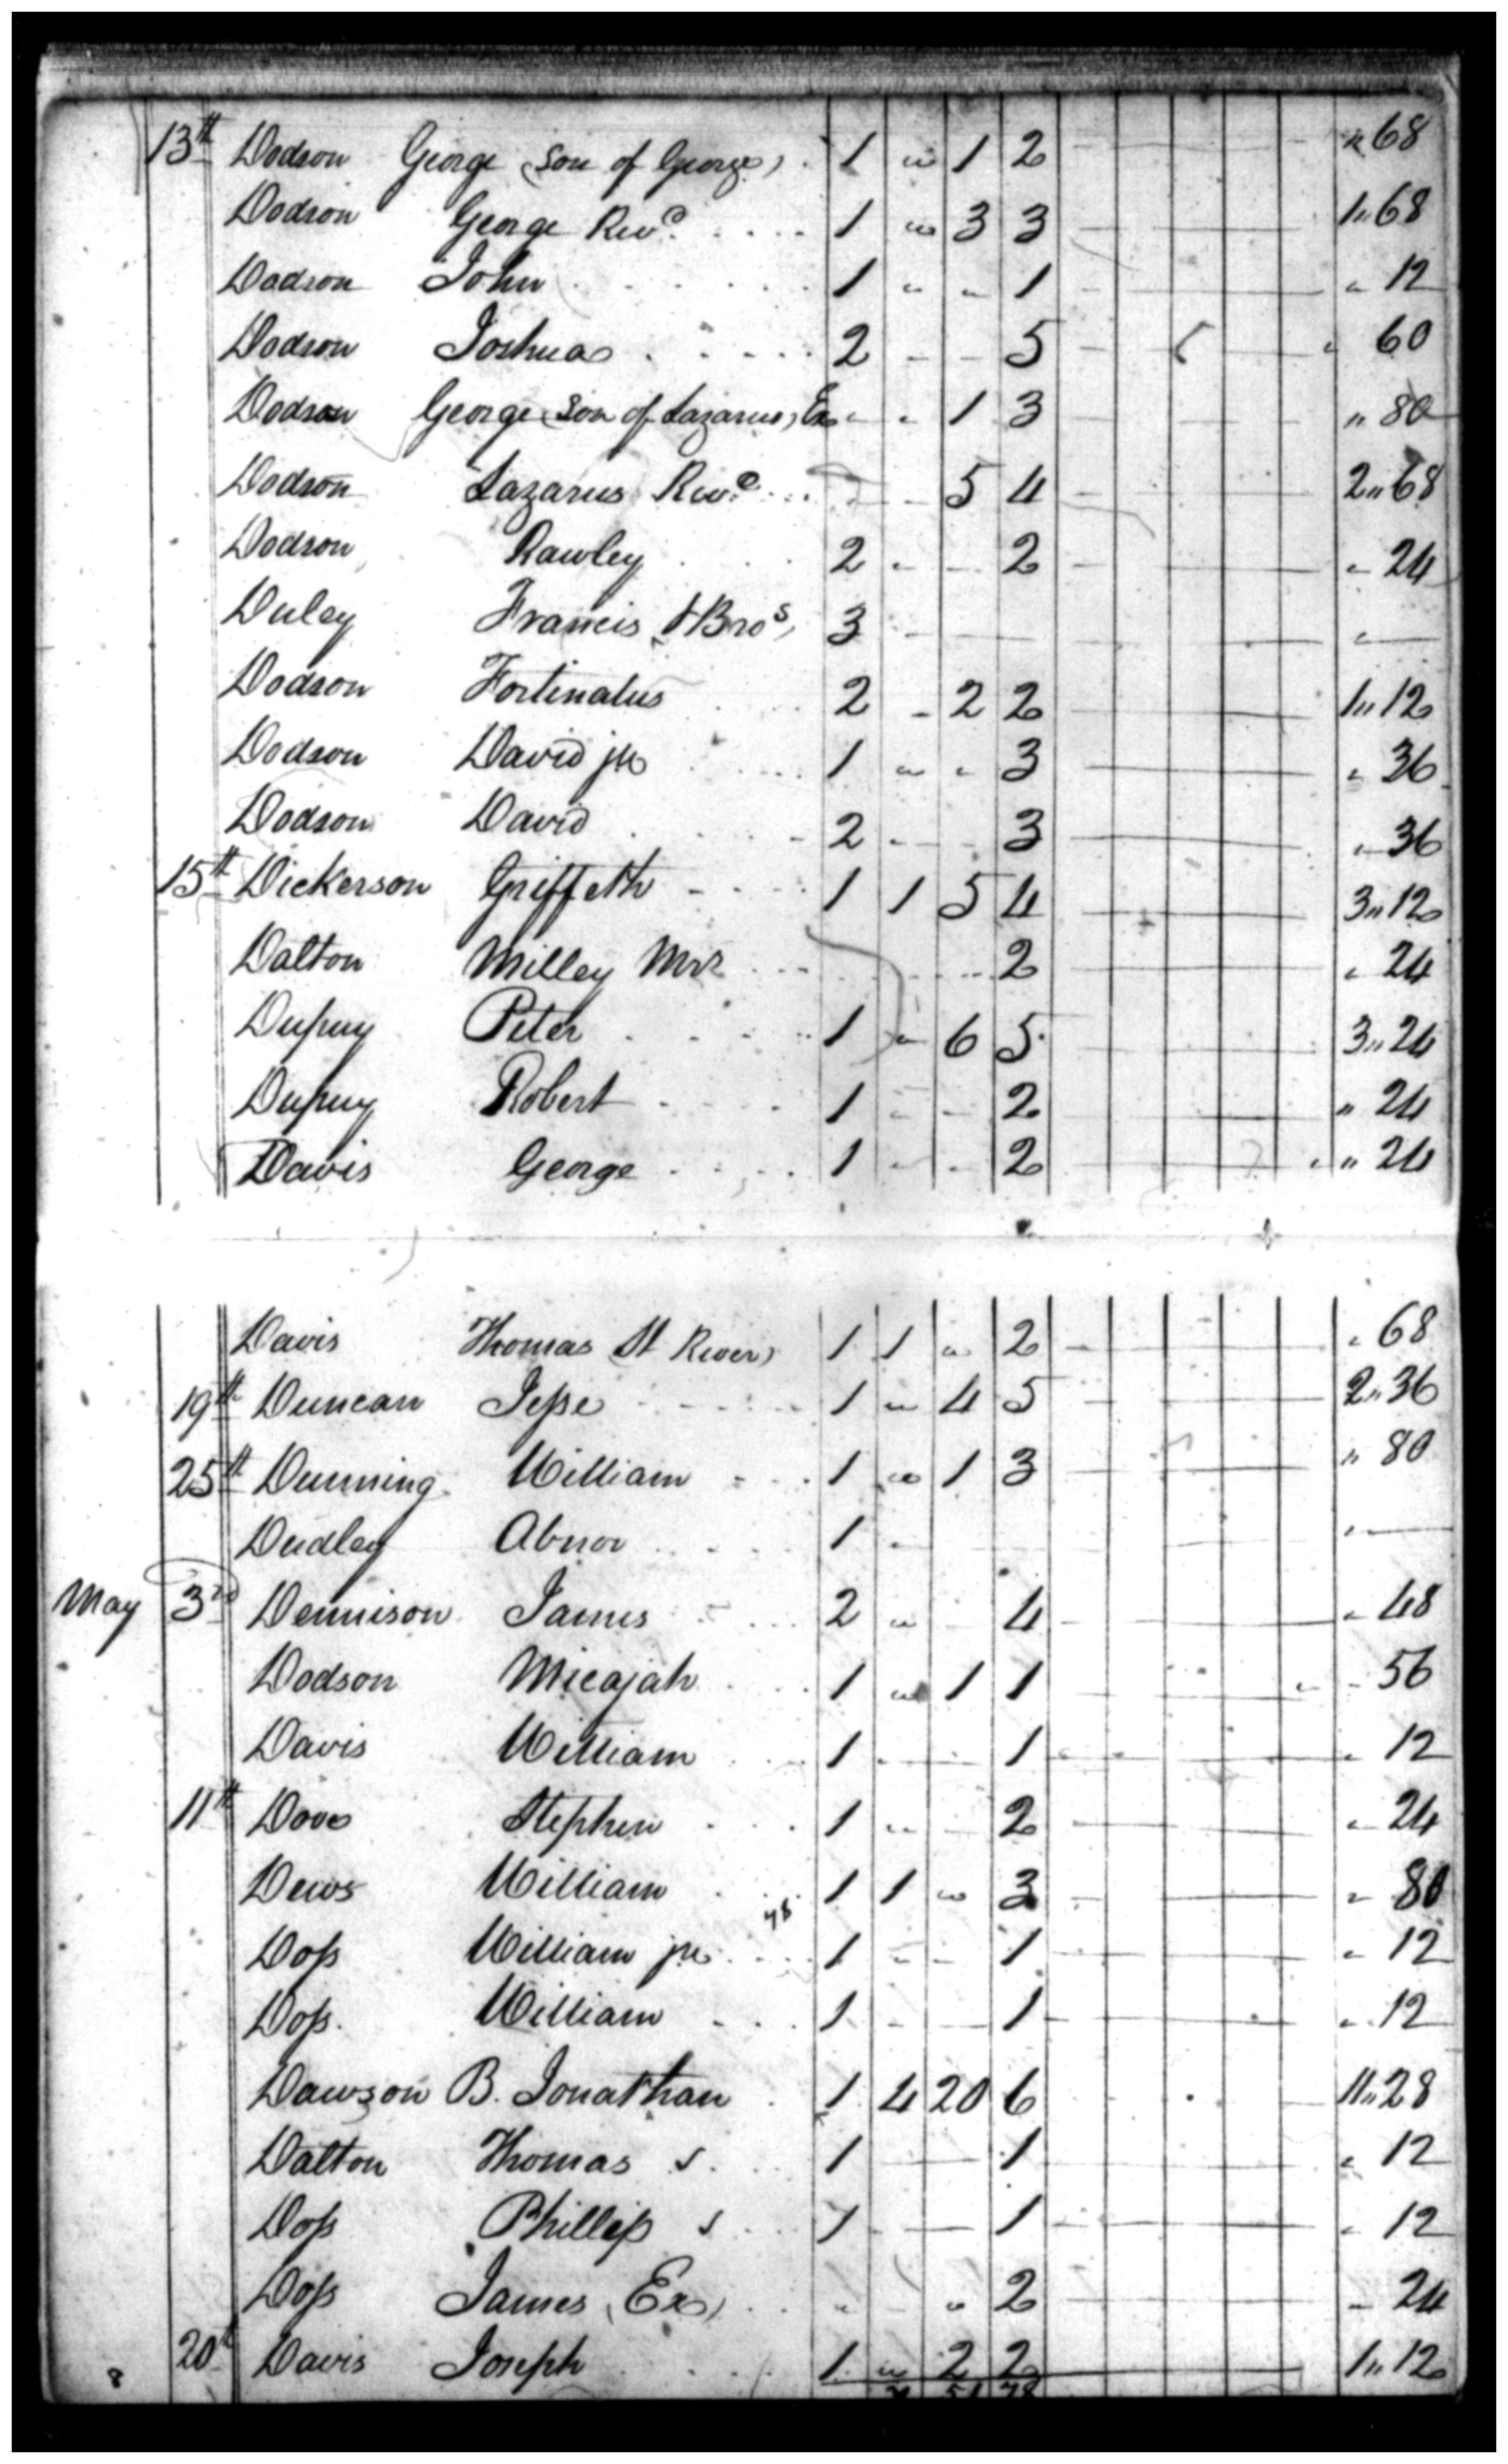 13th Dodson George (son of George) 1 " 1 2 " 68
Dodson George Revd. 1 " 3 3 1" 68
Dodson John 1 " " 1 " 12
Dodson Joshua 2 - - 5 " 60
Dodson George (son of Lazarus) Ex " " 1 3 " 80
Dodson Lazarus Revd. 5 4 2" 68
Dodson Rawley 2 " - 2 " 24
Duley Francis & Bros, 3 - "
Dodson Fortinatus 2 - 2 2 1" 12
Dodson David jr 1 " " 3 " 36
Dodson David 2 - - 3 " 36
15th Dickerson Griffeth 1 1 5 4 3" 12
Dalton Milley Mrs 2 " 24
Dupuy Peter 1 " 6 5 3" 24
Dupuy Robert 1 - - 2 " 24
Davis George 1 - - 2 " 24
Davis Thomas St River) 1 1 " 2 " 68
19th Duncan Jesse 1 " 4 5 2" 36
25th Dunning William 1 " 1 3 " 80
Dudley Abnor 1 - "
May 3rd Dennison James 2 " 4 " 48
Dodson Micajah 1 " 1 1 - 56
Davis William 1 - - 1 " 12
11th Dove Stephen 1 " - 2 " 24
Dews William 1 1 " 3 " 80
Doss William jr 1 - - 1 " 12
Doss. William 1 - - 1 " 12
Dawson B. Jonathan 1 4 20 6 11" 28
Dalton Thomas s. 1 - 1 " 12
Doss Phillip s 1 - - 1 " 12
Doss James (Ex) " - " 2 - 24
20th Davis Joseph 1 " 2 2 1" 12
8